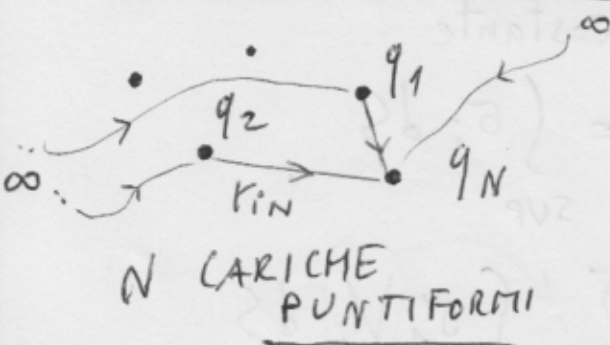 ∞
q1
q2
∞
riN
qN
N CARICHE
PUNTIFORMI